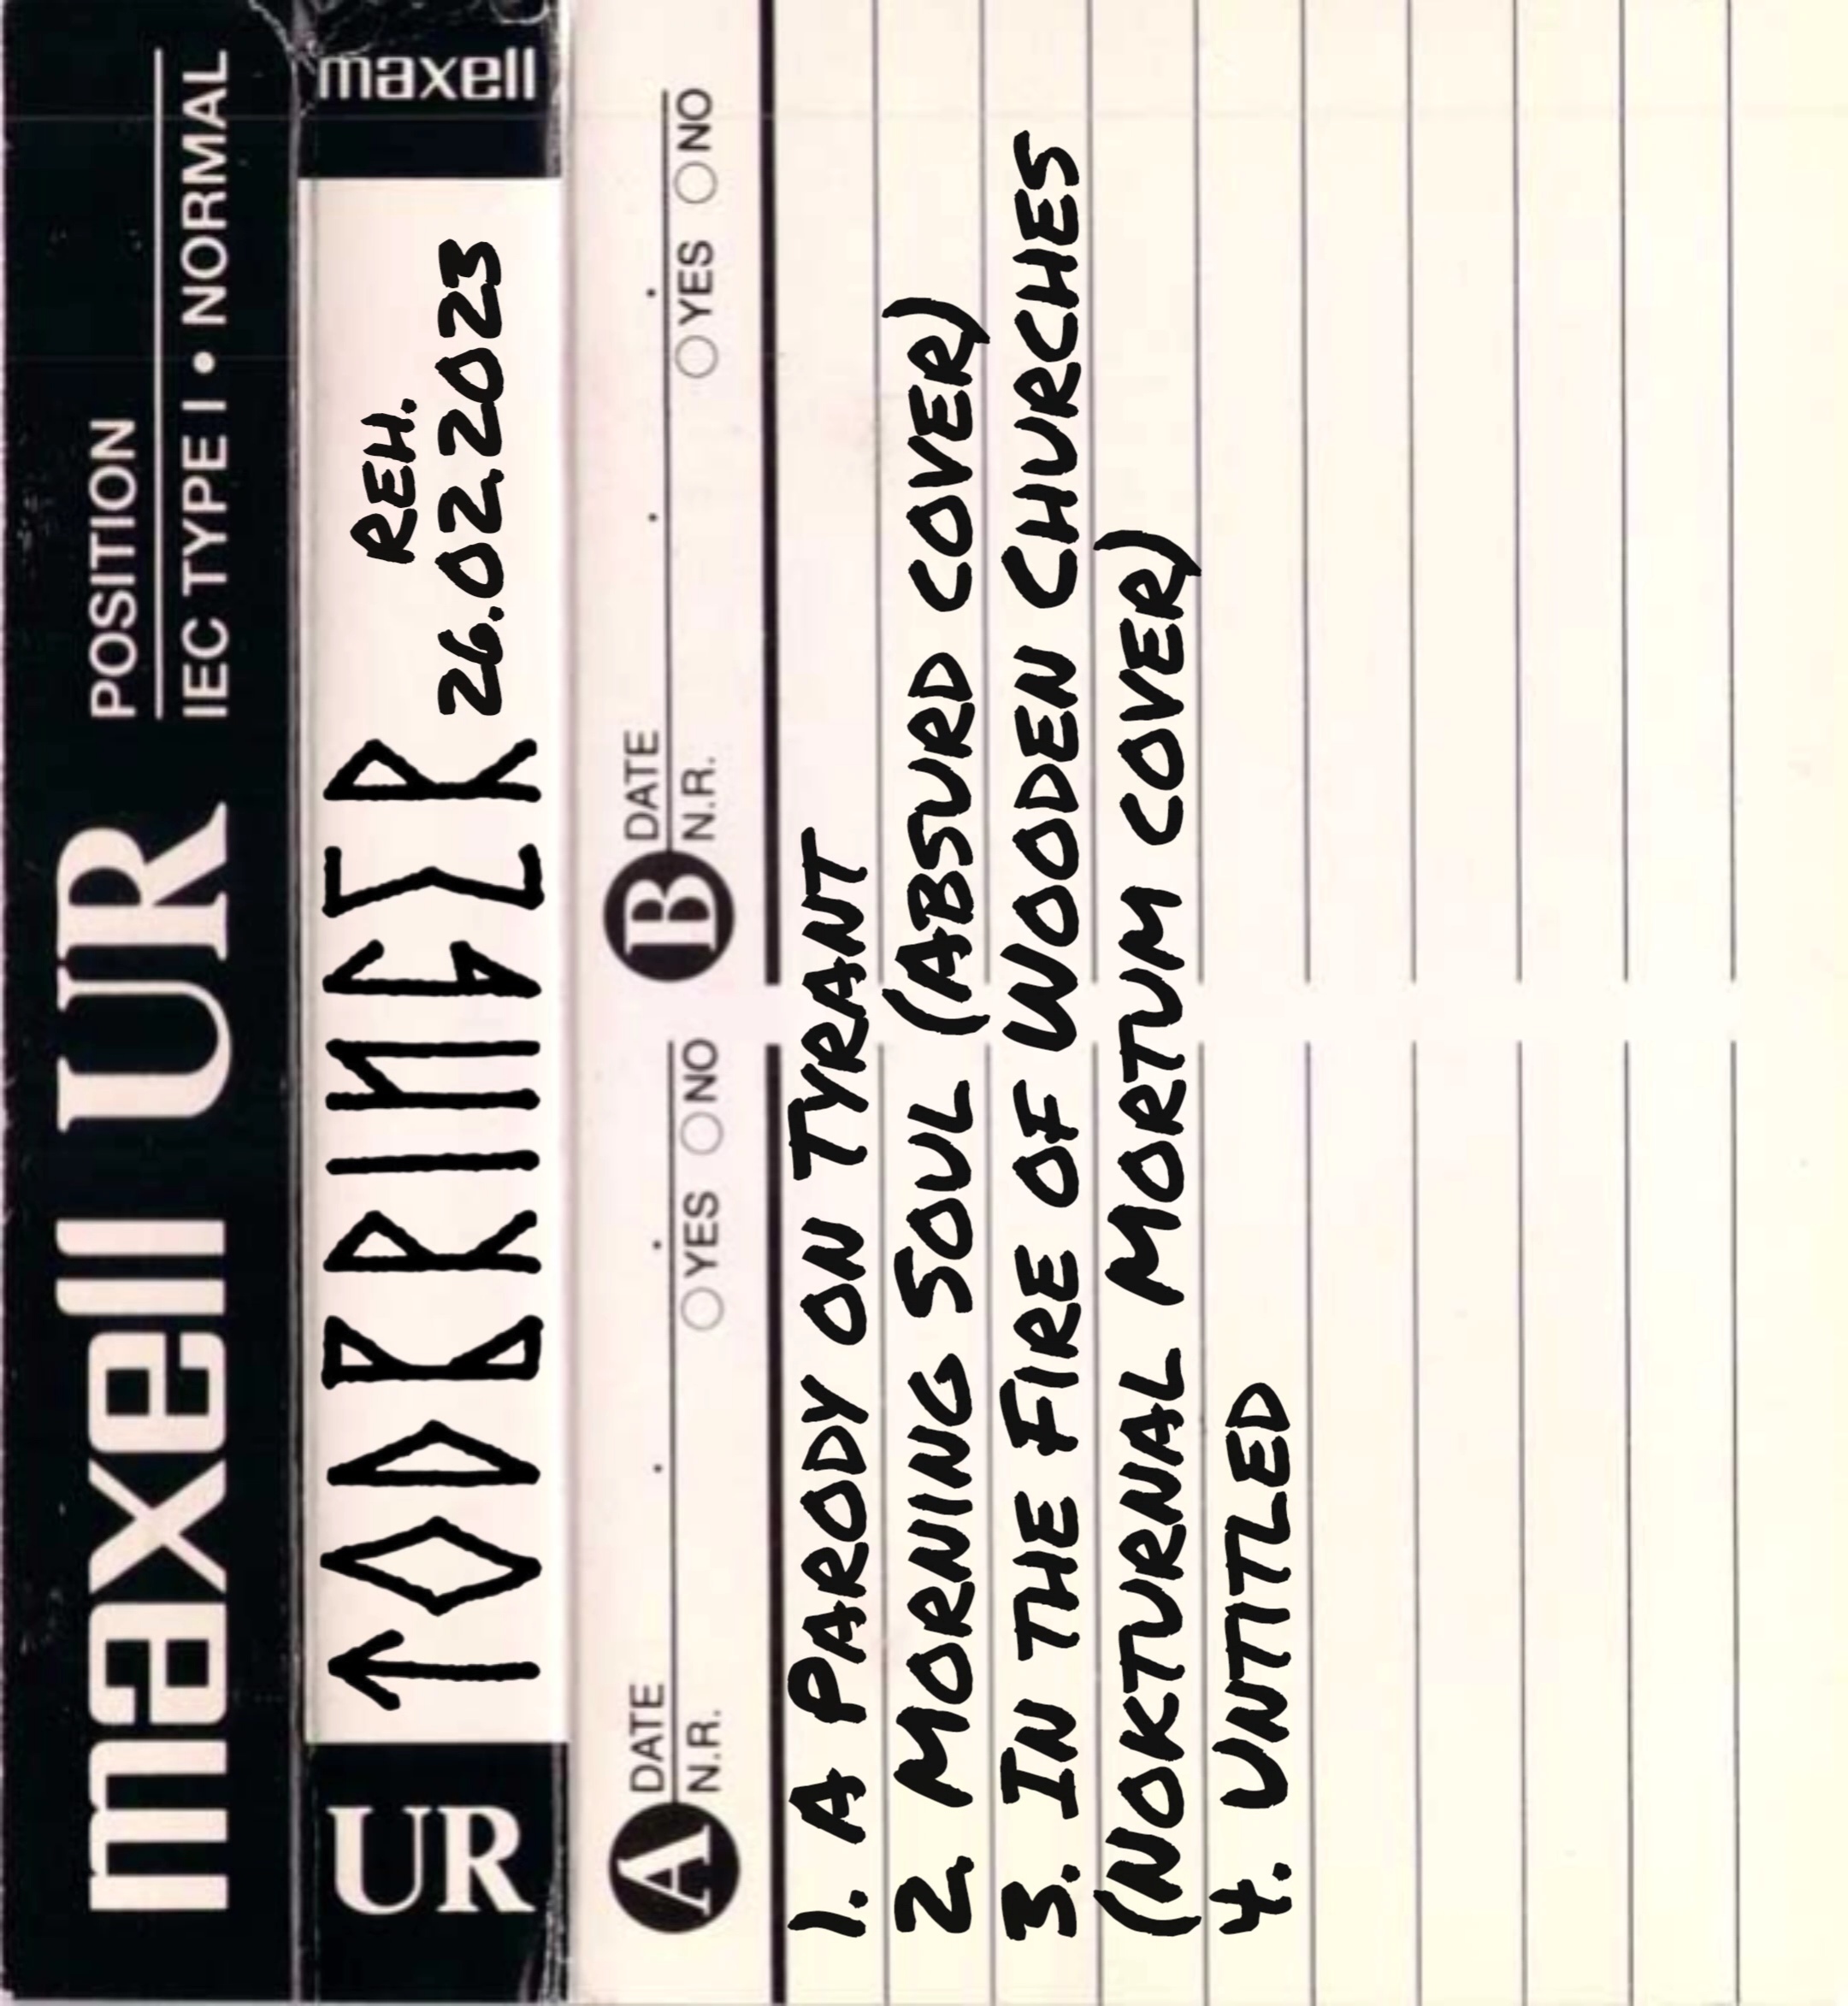 maxell UR POSITION
IEC TYPE I • NORMAL
UR TODBRINGER REH. maxell
26.02.2023
A DATE . . B DATE . .
N.R. ○YES ○NO N.R. ○YES ○NO
1. A PARODY ON TYRANT
2. MORNING SOUL (ABSURD COVER)
3. IN THE FIRE OF WOODEN CHURCHES
(NOKTURNAL MORTUM COVER)
4. UNTITLED